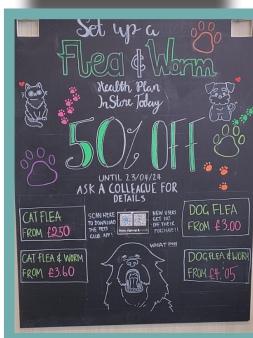 Set up a
Flea & Worm
Health Plan
InStore Today
50% OFF
UNTIL 23/04/24
ASK A COLLEAGUE FOR
DETAILS
CAT FLEA
FROM £2.50
CAT FLEA & WORM
FROM £3.60
SCAN HERE
TO DOWNLOAD
THE PETS
CLUB APP!
NEW USERS
GET
OF THEIR
PURCHASE!!
WHAT?!!!
DOG FLEA
FROM £3.00
DOG FLEA & WORM
FROM £4.05